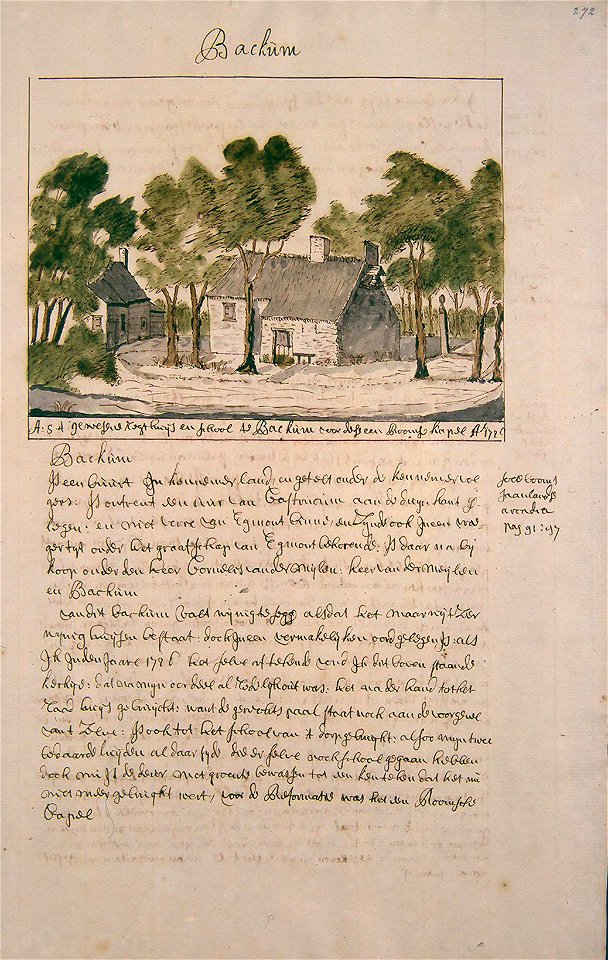 272
Backum
A: 5 d' gewesene regthuijs en school te Backum voor desen Roomse kapel Ao 1726
Backum
Is een buurt In kennemer land, en getelt onder de kennemervol
gers: Is ontrent een uur van Castricum aan de duijn kant ge
legen: en niet verre van Egmont binne, en Zijnde ook In een vroe
ger tijt onder het graafschap van Egmont behorende: Is daar na bij
koop onder den heer Cornelis van der mijlen: heer van der Meijlen
en Backum
van dit backum valt wijnig te segg alsdat het maar uijt Zeer
wijnig huijsen bestaat: doch In een vermakelijken oord gelegen Is: als
Ik In den Jaare 1726 het selve aftekende vond Ik dat boven staande
kerkije: dat na mijn oordeel al bedelft out was: het na der hand tot het
raad huijs gebruijckt: want de geregts paal staat noch aan de voorgevel
van 't Zelve: Is ook tot het school van 't dorp gebruijkt: alsoo mijn twee
bedaarde luijden al daar sijde die er selve noch school gegaan hebben
doch nu Is de deur met groente bewassen tot een ken teken dat het nu
niet meer gebruijkt wert, voor de Reformatie was het een Roomsche
Capel
soetebooms
Saanlands
arcadia
pag 91: 97